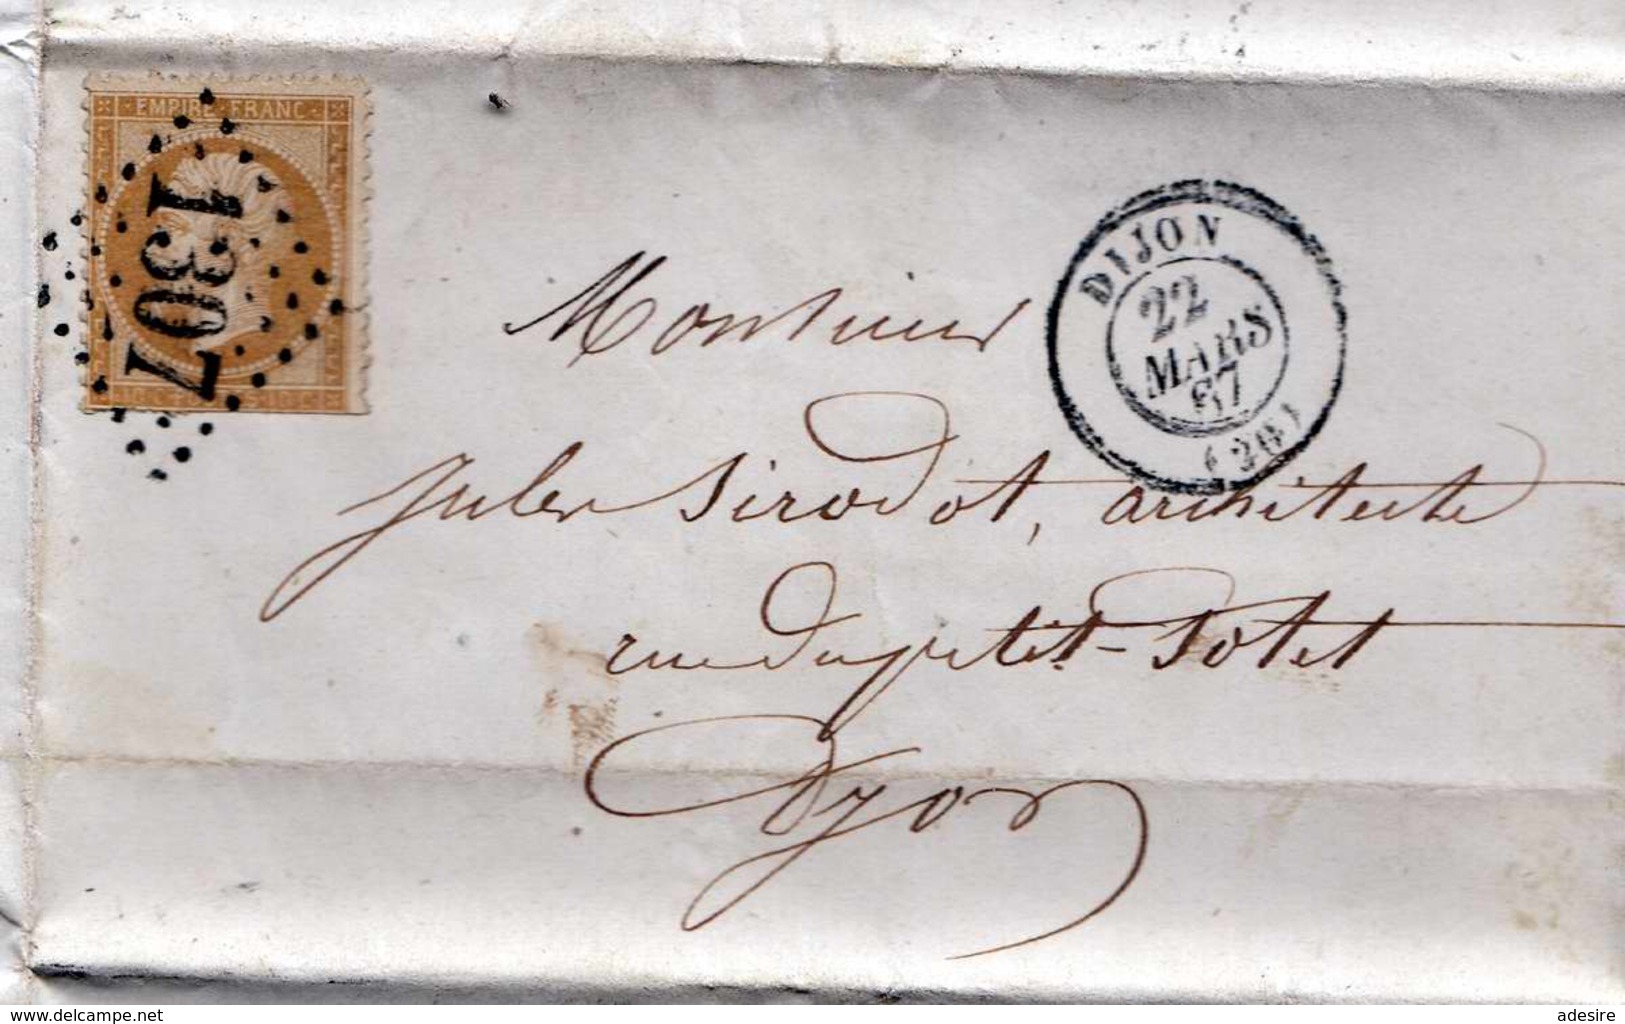 EMPIRE FRANC
1307
DIJON
22
MARS
67
(20)
Monsieur
Jules Sirodot, architecte
rue du petit-Potet
Dijon
www.delcampe.net
adesire